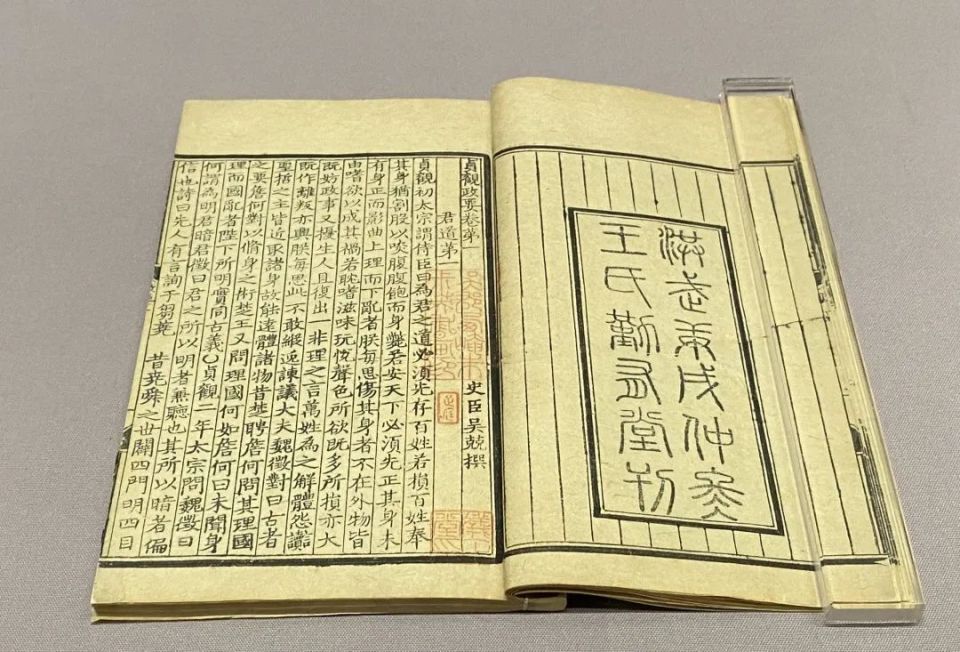 洪武庚戌仲冬
王氏勤有堂刊
貞觀政要卷第
史臣吳兢撰
君道第
貞觀初太宗謂侍臣曰為君之道必須先存百姓若損百姓奉
其身猶割股以啖腹腹飽而身斃若安天下必須先正其身未
有身正而影曲上理而下亂者朕每思傷其身者不在外物皆
由嗜欲以成其禍若耽嗜滋味玩悅聲色所欲既多所損亦大
既妨政事又擾生人且復出一非理之言萬姓為之解體怨讟
既作離叛亦興朕每思此不敢縱逸諫議大夫魏徵對曰古者
聖哲之主皆近取諸身故能遠體諸物昔楚聘詹何問其理國
之要詹何對以脩身之術楚王又問理國何如詹何曰未聞身
理而國亂者陛下所明實同古義〇貞觀二年太宗問魏徵曰
何謂為明君暗君徵曰君之所以明者兼聽也其所以暗者偏
信也詩曰先人有言詢于芻蕘 昔堯舜之世闢四門明四目